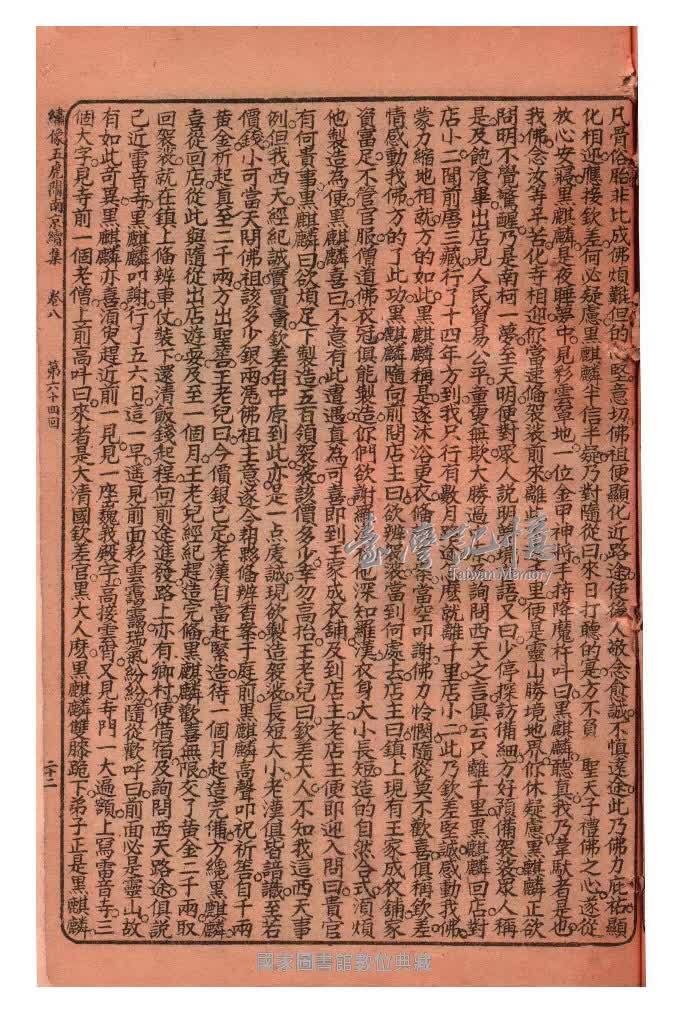 凡骨俗胎非比成佛煩難但的堅意切佛祖便顯化近路途使後人敬念愈誠不憚遠途此乃佛力庇祐顯
化相迎應接欽差何必疑慮黑麒麟半信半疑乃對隨從曰來日打聽的寔方不負 聖天子禮佛之心遂從
放心安寢黑麒麟是夜睡夢中見彩雲罩地一位金甲神將手持降魔杵叫曰黑麒麟聽真我乃韋馱者是也
我佛念汝等辛苦化寺相迎你當速俻架裟前來離此 十里便是靈山勝境地界你休疑慮黑麒麟正欲
問明不覺驚醒乃是南柯一夢至天明便對眾人說明夢境 語又曰少停探訪備細方好預備架裟眾人稱
是及飽食畢出店見人民貿易公平童叟無欺大勝過 詢問西天之言俱云只離千里黑麒麟回店對
店小二問前唐三藏行了十四年方到我只行有數月 途 麼就離千里店小二此乃欽差堅誠感動我佛
蒙力縮地相就方的如此黑麒麟稱是遂沐浴更衣俻 案當空叩謝佛力怜憫隨從莫不歡喜俱稱欽差
情感動我佛方的了此功黑麒麟隨向前問店主曰欲辨 裟當到何處去店主曰鎮上現有王家成衣舖家
資富足不管官服僧道佛衣冠俱能製造你們欲謝羅 他深知羅漢衣身大小長短造的自然合式湏煩
他製造為便黑麒麟喜曰不意有此遭遇真為可喜即到王家成衣舖及到店王老店主便即迎入問曰貴官
有何貴事黑麒麟曰欲煩足下製造五百領架裟該價多少幸勿高抬王老兒曰欽差大人不知我這西天事
例但我西天經紀誠實買賣欽差自中原到此亦是一点虔誠現欲製造架裟長短大小老漢俱皆諳識至若
價錢小可當天問佛祖該多少銀兩凴佛祖主意遂令相夥俻辨香案于庭前黑麒麟高聲叩祝祈筶自千兩
黃金祈起真至二千兩方出聖筶王老兒曰今價銀已定老漢自當赶緊造待一個月起造完備方纔黑麒麟
喜從回店從此與隨從出店遊耍及至一個月王老兒經紀趕造完俻黑麒麟歡喜無限交了黃金二千兩取
回架裟就在鎮上俻辨車仗裝下還清飯錢起程向前途進發路上亦有鄉村便借宿及詢問西天路途俱說
已近雷音寺黑麒麟叩謝行了五六日這一早遙見前面彩雲靄靄瑞氣紛紛隨從歡呼曰前面必是靈山故
有如此奇異黑麒麟亦喜湏臾趕近前一見見一座巍峩殿宇高接雲霄又見寺門一大遍額上寫雷音寺三
個大字見寺前一個老僧上前高叫曰來者是大清國欽差官黑大人麼黑麒麟雙膝跪下弟子正是黑麒麟
繡像五虎鬧南京續集 卷八 第六十四回 二十二
臺灣記憶
Taiwan Memory
國家圖書館數位典藏